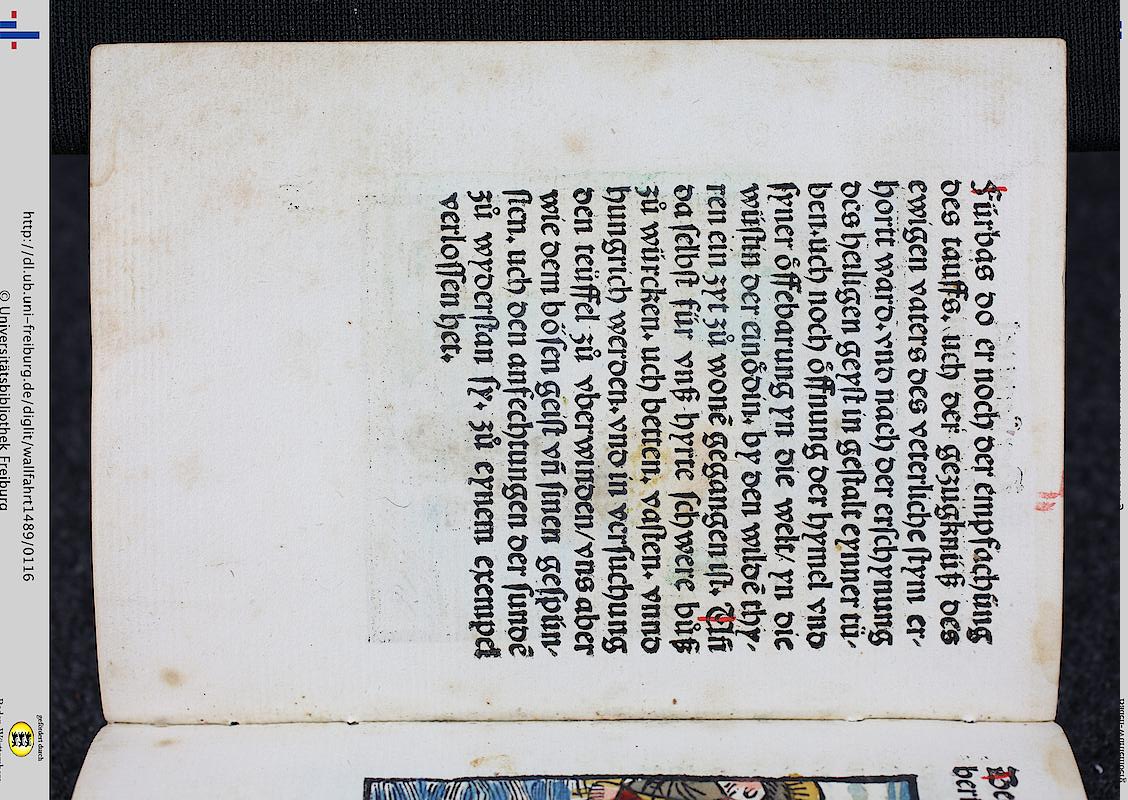 Fúrbas do er noch der empfachūng
des tauffs. uch der gezúgknúß des
ewigen vaters des veterliche stym er-
hortt ward. vnd nach der erschynung
des heiligen geyst in gestalt eynner tú-
ben. uch noch ôffnung der hymel vnd
syner ôffebarung yn die welt/ yn die
wústin der einôdin. by den wildē thy-
ren ein zyt zů wonē gegangen ist. Vñ
da selbst für vnß hyrte schwere bůß
zů würcken. uch betten. vasten. vnnd
hungrich werden. vnd in versuchung
den teüffel zů vberwinden/ vns aber
wie dem bôsen geist vñ sinen gespün-
sten. uch den anfechtungen der sundē
zů wyderstan sy. zů eynem exempel
verlossen het.
Be
ber
http://dl.ub.uni-freiburg.de/diglit/wallfahrt1489/0116
© Universitätsbibliothek Freiburg
gefördert durch